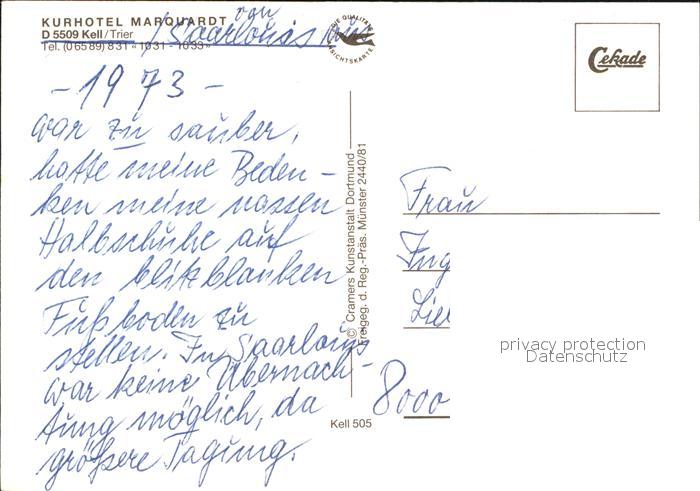 KURHOTEL MARQUARDT
D 5509 Kell/Trier
Tel. (0 65 89) 8 31 · 10 31 - 10 33
von
Saarlouis
DIE QUALITÄTS
ANSICHTSKARTE
Cekade
- 1973 -
war zu sauber,
hatte meine Beden-
ken meine nassen
Halbschuhe auf
den blitzblanken
Fußboden zu
stellen. In Saarlouis
war keine Übernach-
tung möglich, da
größere Tagung.
© Cramers Kunstanstalt Dortmund
Freigeg. d. Reg.-Präs. Münster 2440/81
Kell 505
Frau
Ing
8000
privacy protection
Datenschutz